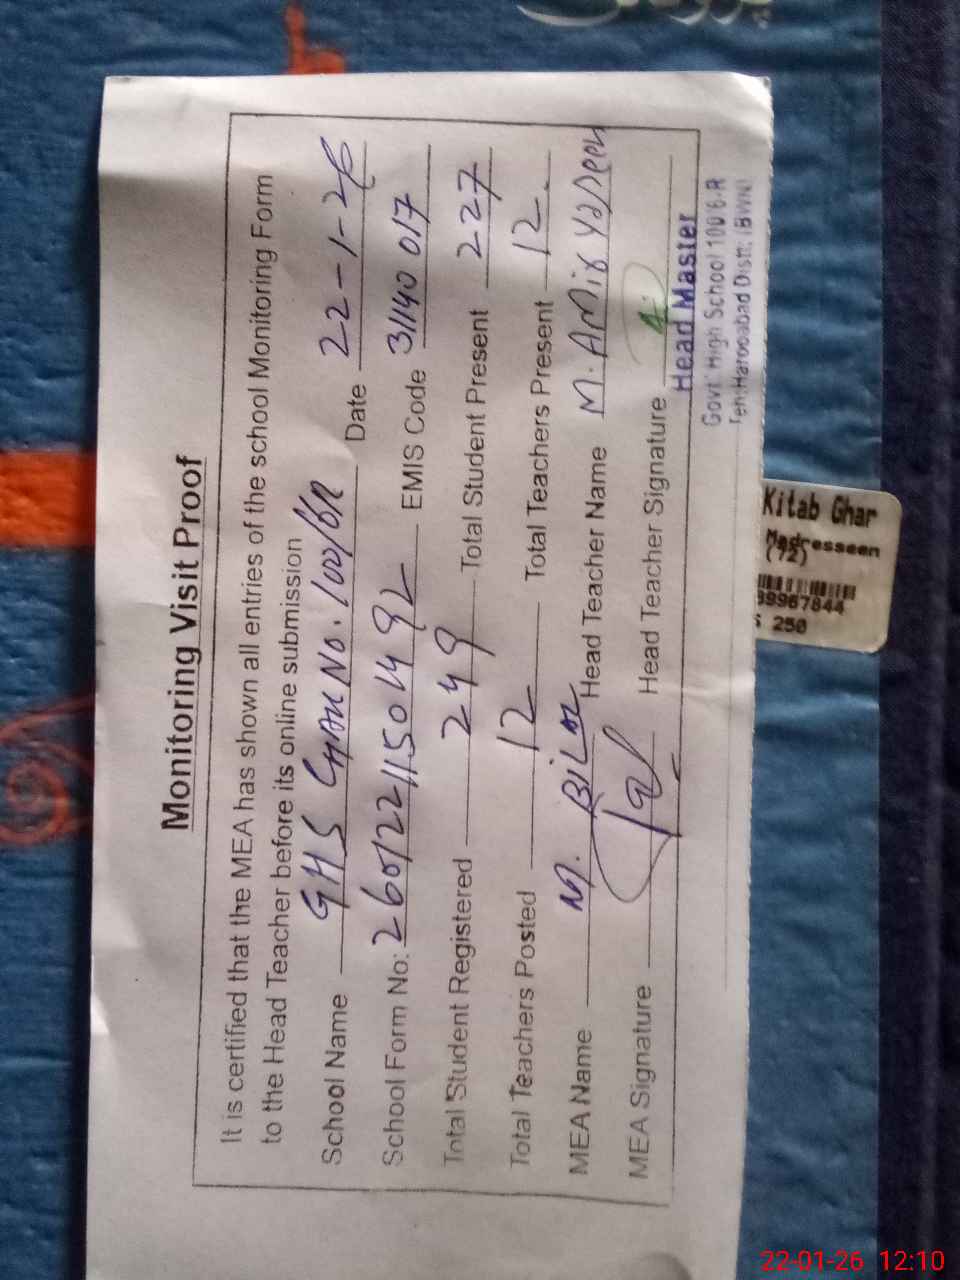 Monitoring Visit Proof
It is certified that the MEA has shown all entries of the school Monitoring Form
to the Head Teacher before its online submission
School Name GHS CHAK No. 100/6R Date 22-1-26
School Form No: 2601221150 1492 EMIS Code 31140 017
Total Student Registered 249 Total Student Present 227
Total Teachers Posted 12 Total Teachers Present 12
MEA Name M. BiLaL Head Teacher Name M. AMir Yaseen
MEA Signature Head Teacher Signature
Head Master
Govt. High School 100/6-R
Teh: Haroonabad Distt: (BWN)
Kitab Ghar
Madresseen
(72)
39967844
250
22-01-26 12:10